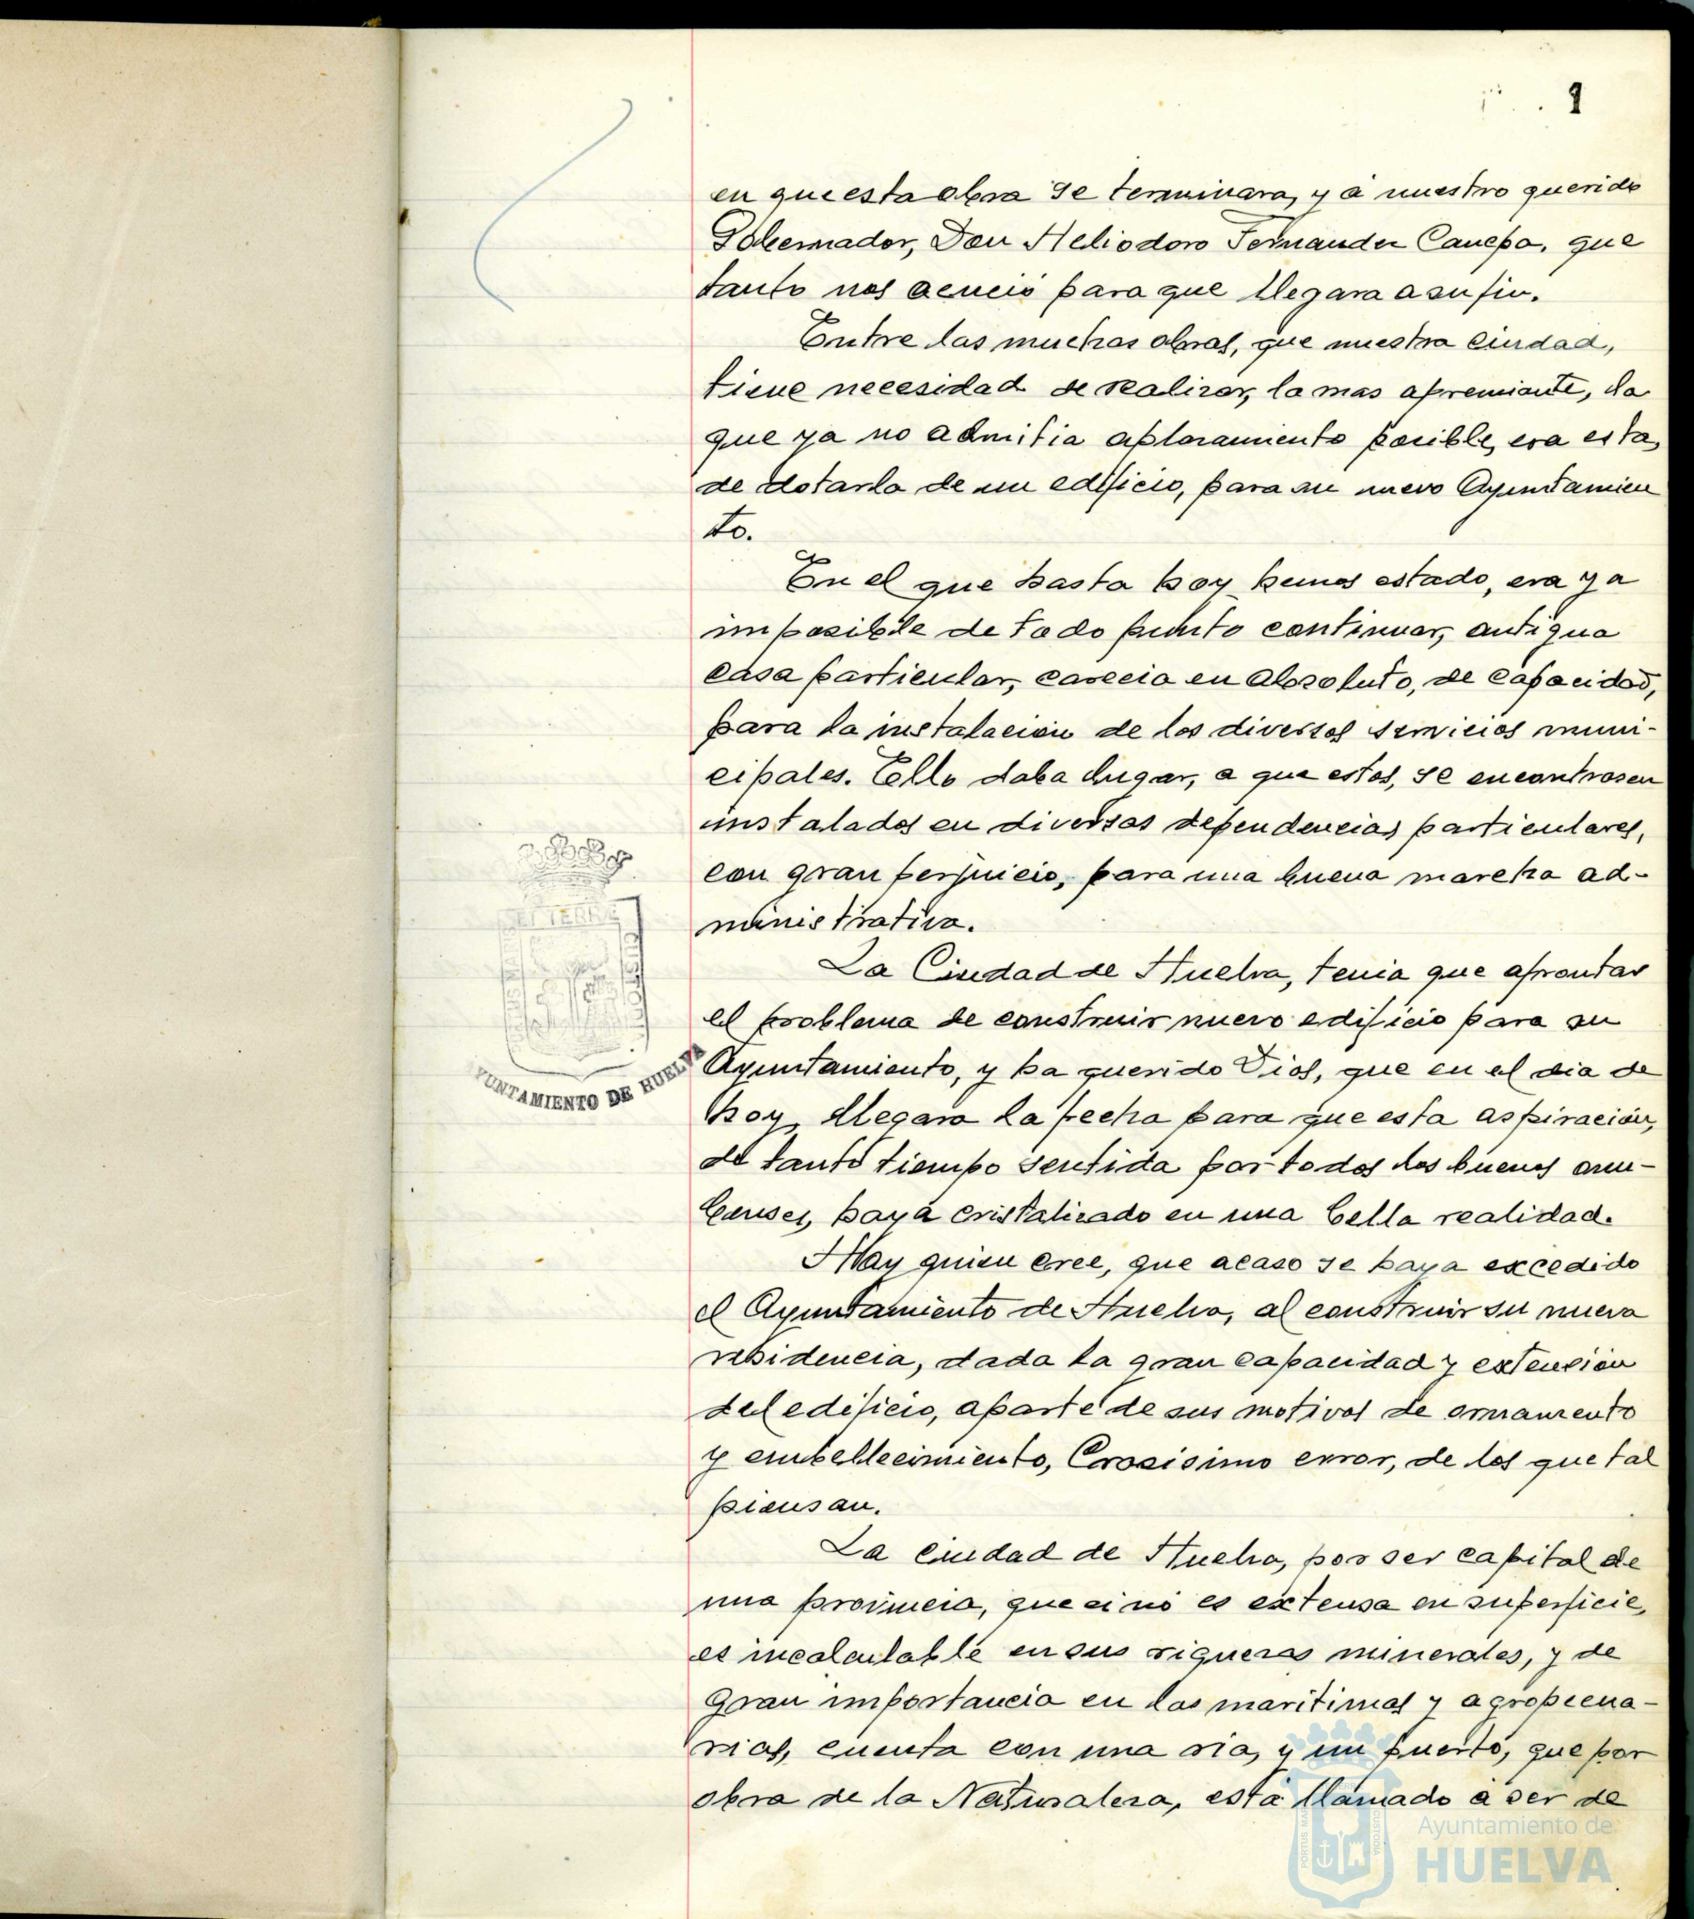 1
en que esta obra se terminara, y á nuestro querido
Gobernador, Don Heliodoro Fernandez Canepa, que
tanto nos acució para que llegara a su fin.
Entre las muchas obras, que nuestra Ciudad,
tiene necesidad de realizar, la mas apremiante, la
que ya no admitia aplazamiento posible, era esta,
de dotarla de un edificio, para su nuevo Ayuntamien
to.
En el que hasta hoy hemos estado, era ya
imposible de todo punto continuar, antigua
casa particular, carecia en absoluto, de capacidad,
para la instalación de los diversos servicios muni-
cipales. Ello daba lugar, a que estos, se encontrasen
instalados en diversas dependencias particulares,
con gran perjuicio, para una buena marcha ad-
ministrativa.
La Ciudad de Huelva, tenia que afrontar
el problema de construir nuevo edificio para su
Ayuntamiento, y ha querido Dios, que en el dia de
hoy, llegara la fecha para que esta aspiración,
de tanto tiempo sentida por todos los buenos onu-
benses, haya cristalizado en una bella realidad.
Hay quien cree, que acaso se haya excedido
el Ayuntamiento de Huelva, al construir su nueva
residencia, dada la gran capacidad y extensión
del edificio, aparte de sus motivos de ornamento
y embellecimiento, Crasisimo error, de los que tal
piensan.
La ciudad de Huelva, por ser capital de
una provincia, que si nó es extensa en superficie,
es incalculable en sus riquezas minerales, y de
gran importancia en las maritimas y agropecua-
rias, cuenta con una ria, y un puerto, que por
obra de la Naturaleza, está llamado á ser de
ET TERRÆ
YUNTAMIENTO DE HUELVA
Ayuntamiento de
HUELVA